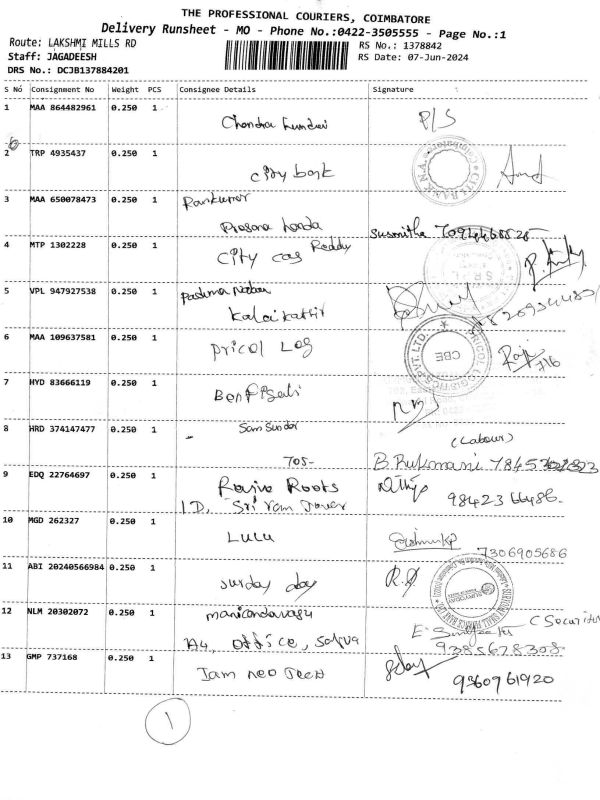 THE PROFESSIONAL COURIERS, COIMBATORE
Delivery Runsheet - MO - Phone No.:0422-3505555 - Page No.:1
Route: LAKSHMI MILLS RD RS No.: 1378842
Staff: JAGADEESH RS Date: 07-Jun-2024
DRS No.: DCJB137884201
S No Consignment No Weight PCS Consignee Details Signature
1 MAA 864482961 0.250 1 P/S
Chandra
2 TRP 4935437 0.250 1
city bank
3 MAA 650078473 0.250 1 Ramkumar
Susmitha
4 MTP 1302228 0.250 1 Reddy
city cas
5 VPL 947927538 0.250 1
Kalaikathir
6 MAA 109637581 0.250 1
Pricol Log
CBE
7 HYD 83666119 0.250 1
8 HRD 374147477 0.250 1 Sam Sundar
(Labour)
705- B. Rukmani
9 EDQ 22764697 0.250 1 Rajia Roots
I.D, Sri ram Tower 9842366486
10 MGD 262327 0.250 1
LULU 7306905686
11 ABI 20240566984 0.250 1
surday day
12 NLM 20302072 0.250 1
A4, office, 9385678308
13 GMP 737168 0.250 1
Jam neo 9360961920
1